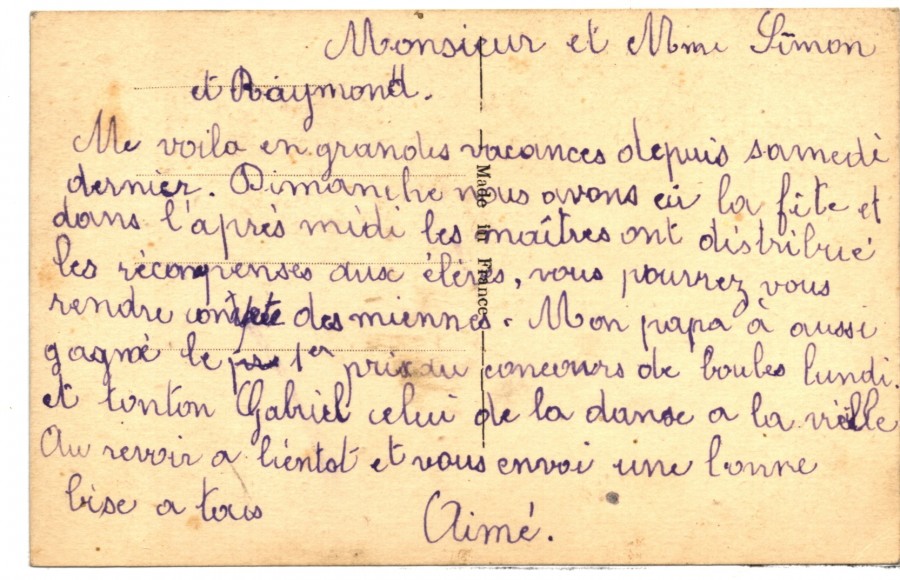 Monsieur et Mme Simon
et Raymond.
Me voila en grandes vacances depuis samedi
dernier. Dimanche nous avons eu la fête et
dans l'après midi les maîtres ont distribué
les récompenses aux élèves, vous pourrez vous
rendre compte des miennes. Mon papa à aussi
gagné le 1er prix du concours de boules lundi.
et tonton Gabriel celui de la danse a la vielle
Au revoir a bientot et vous envoi une bonne
bise a tous
Aimé.
Made in France